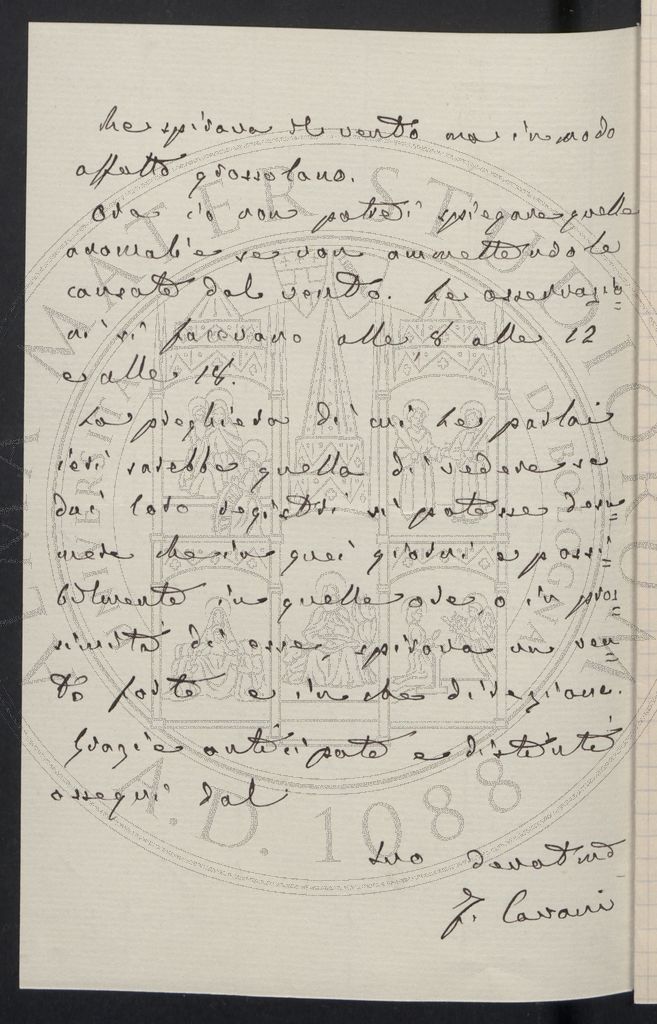 che spirava il vento ma in modo
affatto grossolano.
Ora io non potrei spiegare quelle
anomalie se non ammettendole
causate dal vento. Le osservazio=
ni si facevano alle 8 alle 12
e alle 18.
La preghiera di cui Le parlai
ieri sarebbe quella di vedere se
dai loro registri si potesse desu=
mere che in quei giorni e possi=
bilmente in quelle ore, o in pros=
simità di esse, spirava un ven=
to forte e in che direzione.
Grazie anticipate e distinti
ossequi dal
Suo devotmo
F. Cavani
ALMA MATER STUDIORUM
UNIVERSITÀ DI BOLOGNA
A.D. 1088